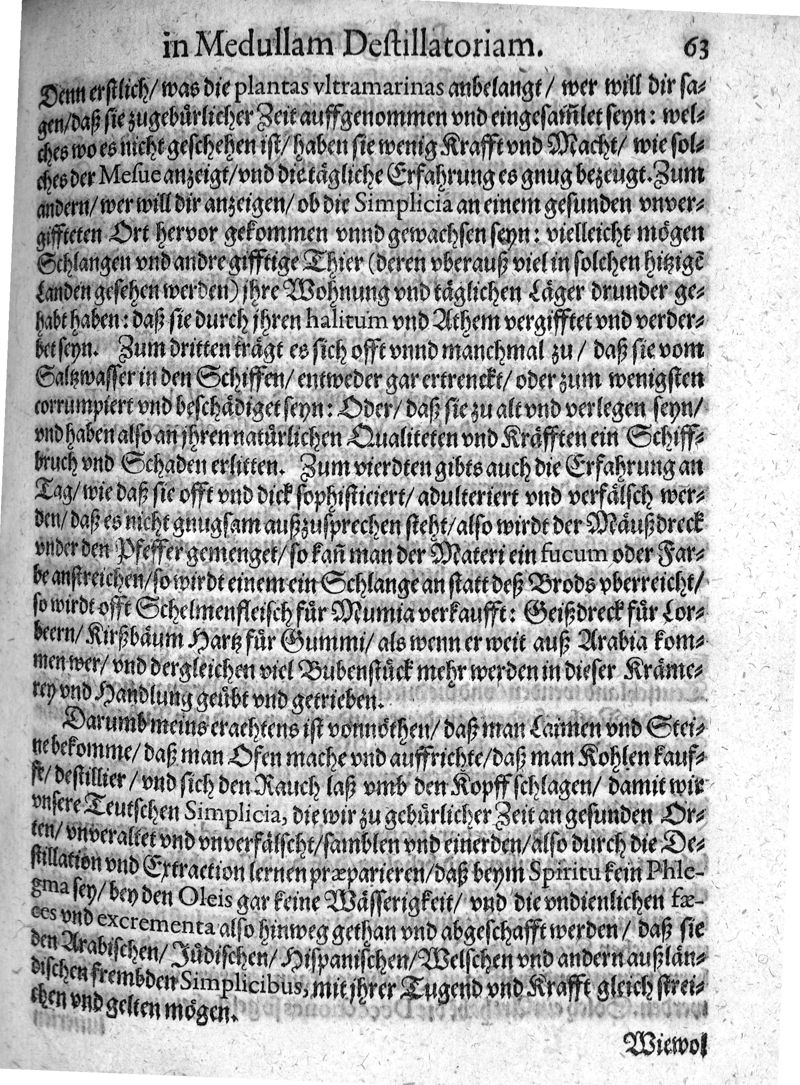 in Medullam Destillatoriam. 63
Denn erstlich/ was die plantas vltramarinas anbelangt/ wer will dir sa-
gen/daß sie zugebürlicher Zeit auffgenommen vnd eingesam̃let seyn: wel-
ches wo es nicht geschehen ist/ haben sie wenig Krafft vnd Macht/ wie sol-
ches der Mesue anzeigt/vnd die tägliche Erfahrung es gnug bezeugt. Zum
andern/ wer will dir anzeigen/ ob die Simplicia an einem gesunden vnver-
giffteten Ort hervor gekommen vnnd gewachsen seyn: vielleicht mögen
Schlangen vnd andre gifftige Thier (deren vberauß viel in solchen hitzigẽ
Landen gesehen werden) jhre Wohnung vnd täglichen Läger drunder ge-
habt haben: daß sie durch jhren halitum vnd Athem vergifftet vnd verder-
bet seyn. Zum dritten trägt es sich offt vnnd manchmal zu/ daß sie vom
Saltzwasser in den Schiffen/ entweder gar ertrenckt/ oder zum wenigsten
corrumpiert vnd beschädiget seyn: Oder/ daß sie zu alt vnd verlegen seyn/
vnd haben also an jhren natürlichen Qualiteten vnd Kräfften ein Schiff-
bruch vnd Schaden erlitten. Zum vierdten gibts auch die Erfahrung an
Tag/ wie daß sie offt vnd dick sophisticiert/ adulteriert vnd verfälsch wer-
den/ daß es nicht gnugsam außzusprechen steht/ also wirdt der Mäußdreck
vnder den Pfeffer gemenget/ so kañ man der Materi ein fucum oder Far-
be anstreichen/so wirdt einem ein Schlange an statt deß Brods vberreicht/
so wirdt offt Schelmenfleisch für Mumia verkaufft: Geißdreck für Lor-
beern/ Kirßbäum Hartz für Gummi/ als wenn er weit auß Arabia kom-
men wer/ vnd dergleichen viel Bubenstück mehr werden in dieser Kräme-
rey vnd Handlung geübt vnd getrieben.
Darumb meins erachtens ist vonnöthen/ daß man Laimen vnd Stei-
ne bekomme/ daß man Ofen mache vnd auffrichte/daß man Kohlen kauf-
fe/ destillier/ vnd sich den Rauch laß vmb den Kopff schlagen/ damit wir
vnsere Teutschen Simplicia, die wir zu gebürlicher Zeit an gesunden Or-
ten/ vnveraltet vnd vnverfälscht/samblen vnd einerden/also durch die De-
stillation vnd Extraction lernen præparieren/ daß beym Spiritu kein Phle-
gma sey/ bey den Oleis gar keine Wässerigkeit/ vnd die vndienlichen fæ-
ces vnd excrementa also hinweg gethan vnd abgeschafft werden/ daß sie
den Arabischen/ Jüdischen/ Hispanischen/Welschen vnd andern außlän-
dischen frembden Simplicibus, mit jhrer Tugend vnd Krafft gleich strei-
chen vnd gelten mögen.
Wiewol